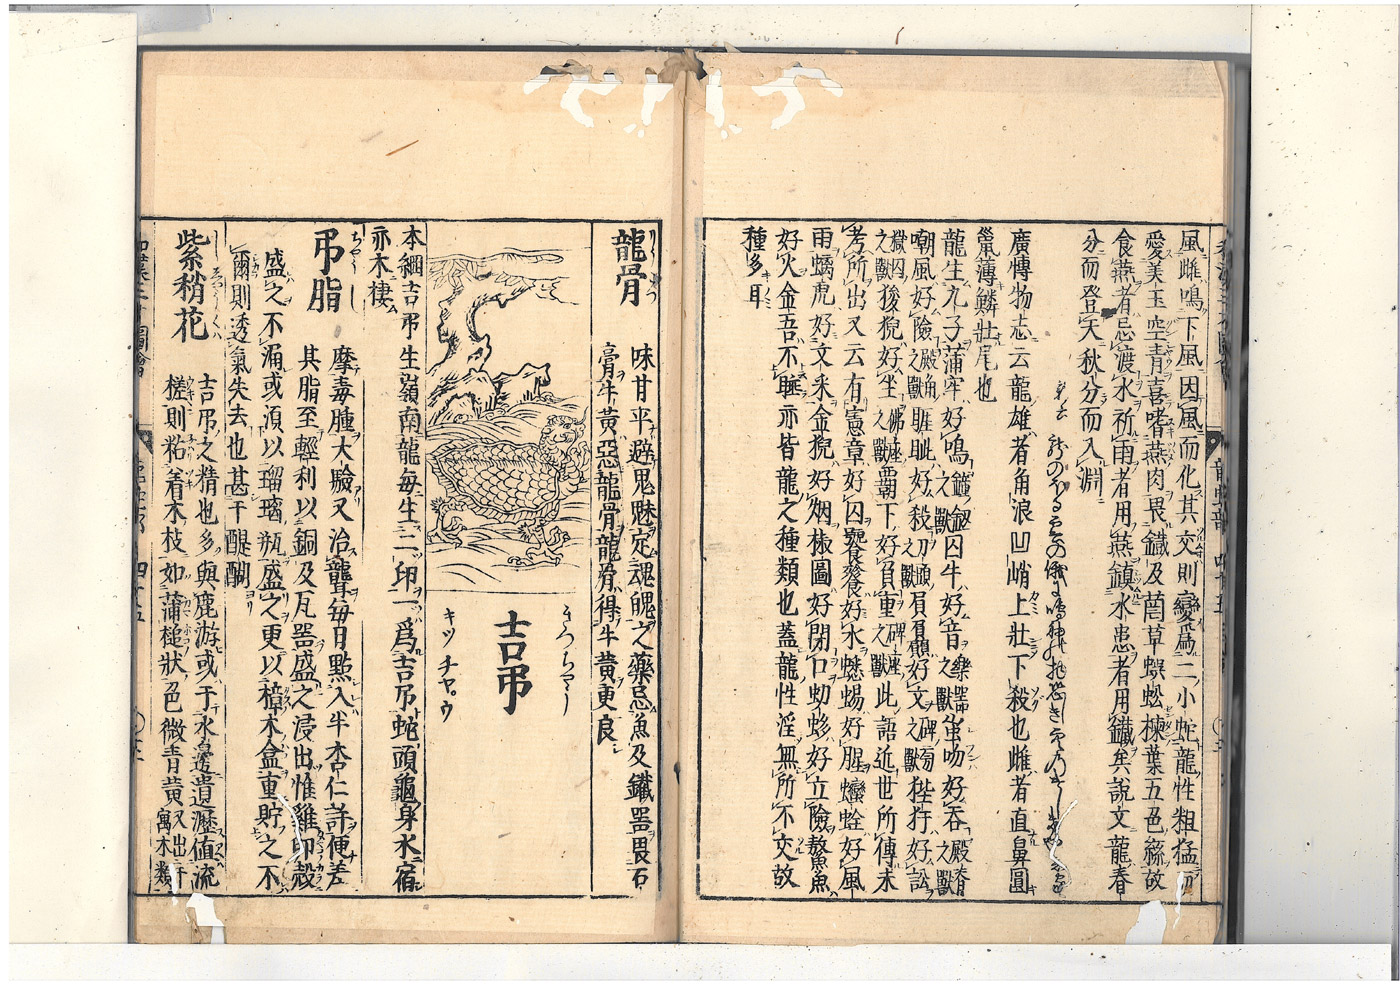 風雌鳴下風因風而化其交則變為二小蛇龍性粗猛而
愛美玉空青喜嗜燕肉畏鐵及茵草蜈蚣楝葉五色絲故
食燕者忌渡水祈雨者用燕鎮水患者用鐵矣說文龍春
分而登天秋分而入淵
廣愽物志云龍雄者角浪凹峭上壯下殺也雌者直鼻圓
鬣薄鱗壯尾也
龍生九子蒲牢好鳴鐘鈕之獸囚牛好音樂器之獸蚩吻好吞殿脊之獸
嘲風好險殿角之獸睚眦好殺刀頭之獸屓屭好文碑㫄之獸狴犴好訟
獄囚之獸狻猊好坐佛座之獸覇下好負重碑座之獸此語近世所傳未
考所出又云有憲章好囚饕餮好水蟋蜴好腥蠻蛭好風
雨螭虎好文采金猊好烟椒圖好閉口虭蛥好立險鰲魚
好火金吾不睡亦皆龍之種類也蓋龍性淫無所不交故
種多耳
龍骨
味甘平避鬼魅定魂魄之藥忌魚及鐵器畏石
膏牛黃惡龍骨龍骨得牛黃更良
きつちやう
吉弔
キツ チヤ゚ウ
本綱吉弔生嶺南龍每生二卵一爲吉弔蛇頭龜身水宿
亦木棲
弔脂
ちやうし
摩毒腫大驗又治聾每日點入半杏仁許便差
其脂至輕利以銅及瓦器盛之浸出惟雞卵殼
盛之不漏或須以瑠璃瓶盛之更以樟木盒重貯之不
爾則透氣失去也甚于醍醐
紫稍花
吉弔之精也多與鹿游或于水邊遺瀝值流
槎則粘着木枝如蒲槌狀色微青黃又出于寓木類